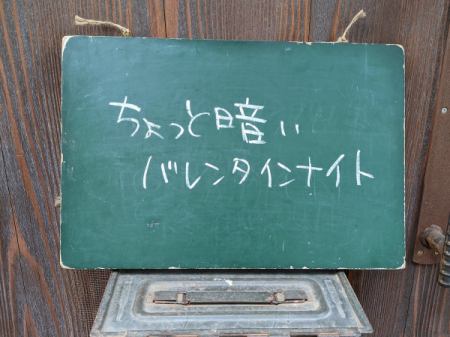 ちょっと暗い
バレンタインナイト